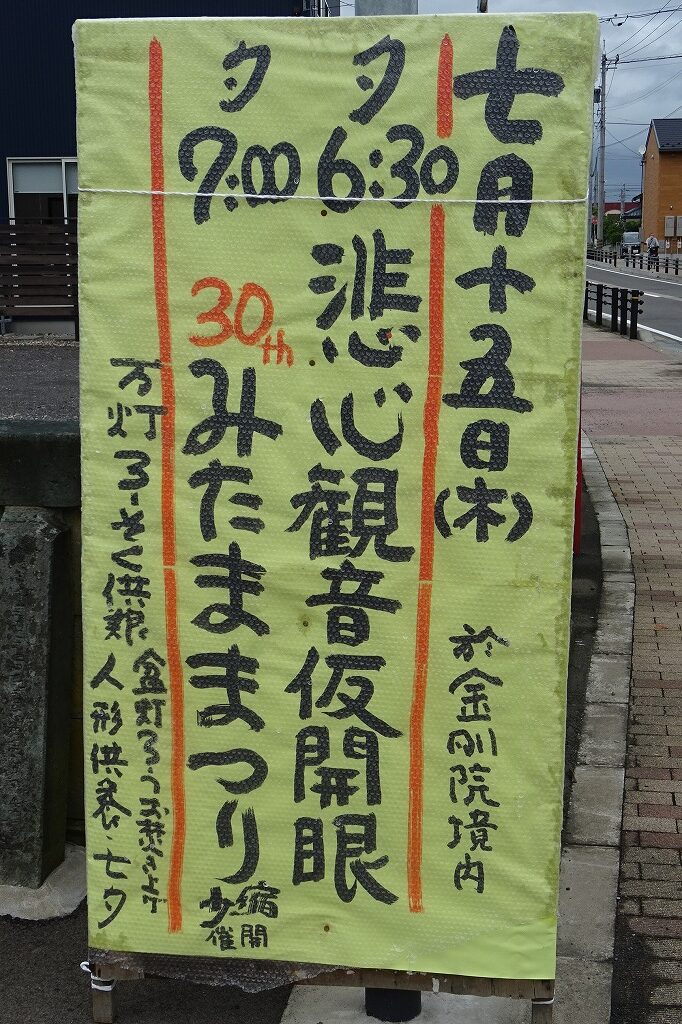 七月十五日(木)
於金剛院境内
夕6:30
悲心観音仮開眼
夕7:00
30th
みたままつり
縮少開催
万灯ろーそく供養
盆灯ろうお焚き上げ
人形供養・七夕